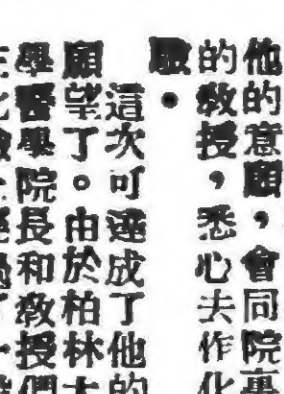 他的意願，會同院裏
的教授，悉心去作化
驗。
這次可達成了他的
願望了。由於柏林大
學醫學院長和教授們